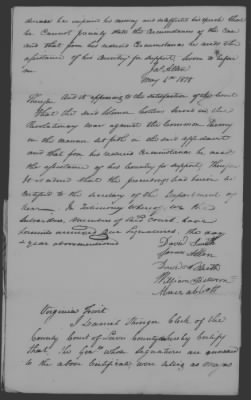 disease he impared his memory and so affected his speech that
he Cannot precisely state the circumstances of the case
and that from his reduced Circumstances he needs the
assistance of his Country for support, Sworn to before
me
May 5th 1818
And it appearing to the satisfaction of the Court
That the said served in the
Revolutionary war against the Common Enemy
in the manner set forth in the said affidavit
and that from his reduced circumstances he needs
the assistance of his Country for support, Therefore
be it ordered that the proceedings had herein be
certified to the Secretary of the Department of
War. In Testimony whereof, we the
Subscribers, Members of said Court, have
hereunto our Signatures, the day
& year abovementioned
David Smith
James Allen
David
William
Virginia Towit
I Stringer Clerk of the
County Court of County hereby Certify
that, the Gent whose signatures are annexed
to the above Certificate, were acting as